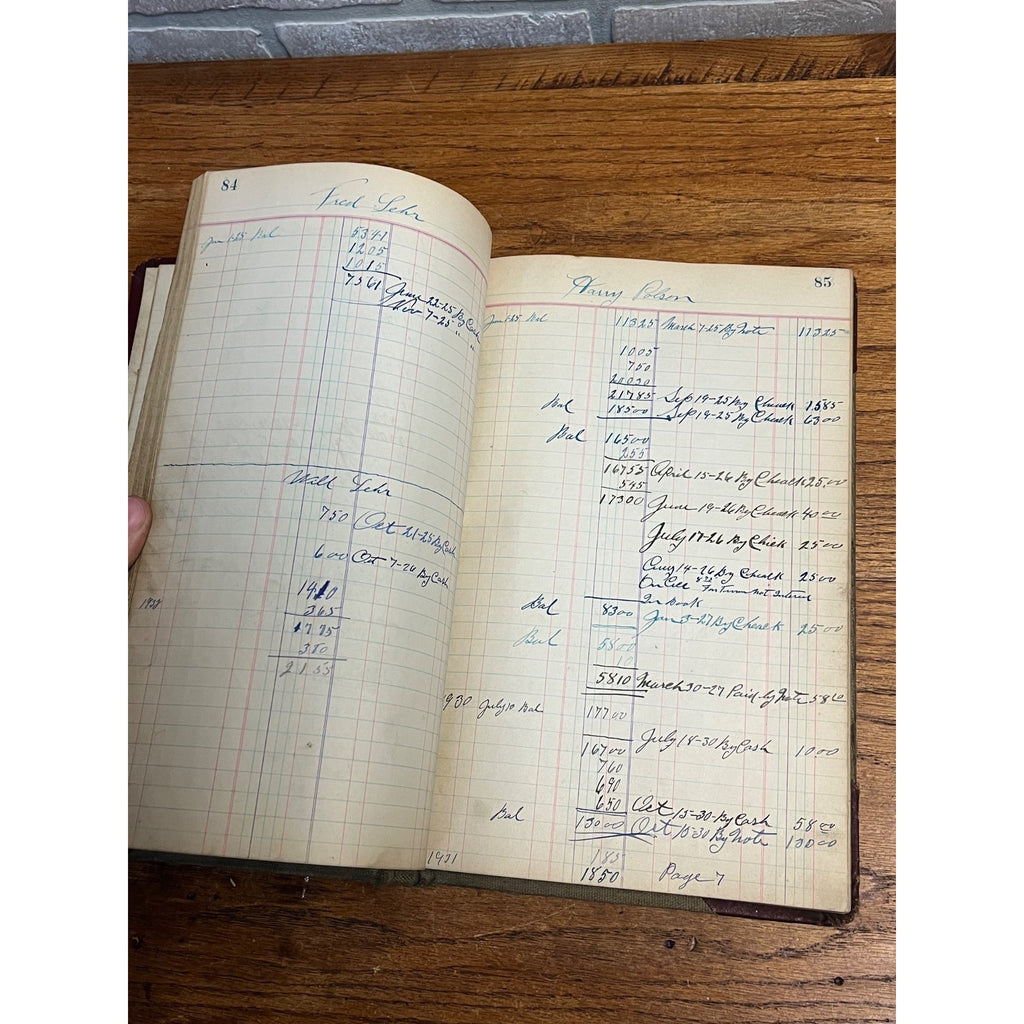 84
Fred Lehr
Jan 1-25 Bal 5341
1205
1015
7561 June 22-25 By Cash
Nov 7-25 " "
Will Lehr
750 Oct 21-25 By Cash
600 Oct 7-26 By Cash
1410
1928 365
1775
380
2155
85
Harry Polson
Jan 1-25 Bal 11325 March 7-25 By Note 11325
1005
750
20030
21785 Sep 19-25 By Cheack 1585
Bal 18500 Sep 19-25 By Cheack 6300
Bal 16500
255
16755 April 15-26 By Cheack 2500
545
17300 June 19-26 By Cheack 4000
July 17-26 By Chick 2500
Aug 14-26 By Cheack 2500
Not Interest
In Book
Bal 8300 Jan 3-27 By Cheack 2500
Bal 5800
10
5810 March 30-27 Paid by Note 5810
1930 July 10 Bal 17700
July 18-30 By Cash 1000
16700
760
690
650 Oct 15-30-By Cash 5800
Bal 13000 Oct 15-30 By Note 13000
1931 185
1850 Page 7